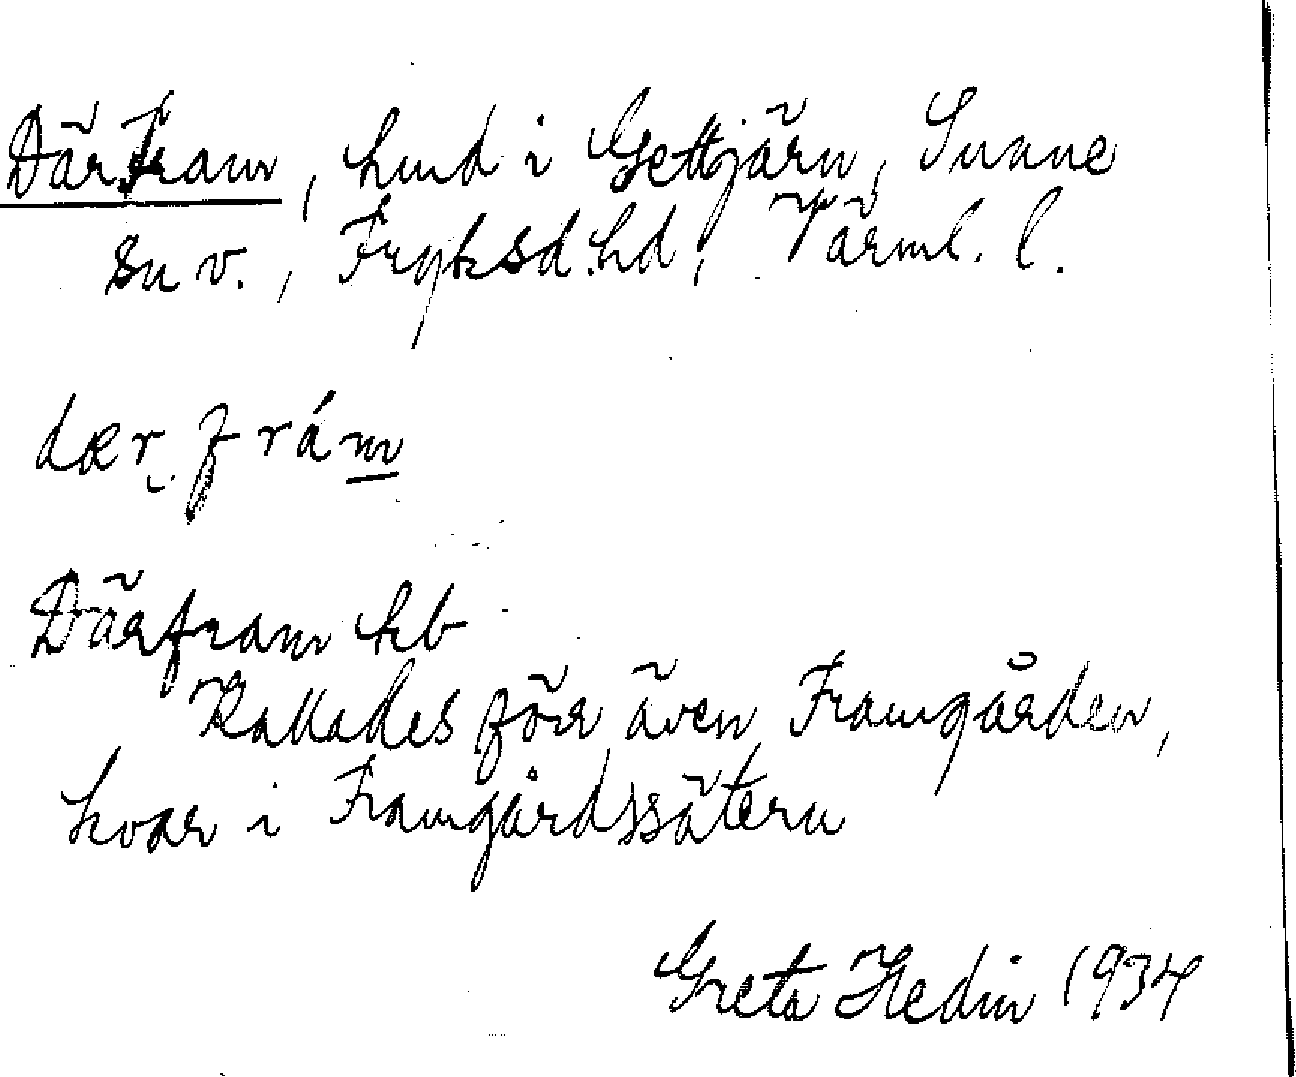 Därfram, hmd i Gettjärn, Sunne
sn v., Fryksd. hd, Värml. l.
dær fram
Därfram kb
Kallades förr även Framgården,
kvar i Framgårdssätern
Greta Hedin 1934